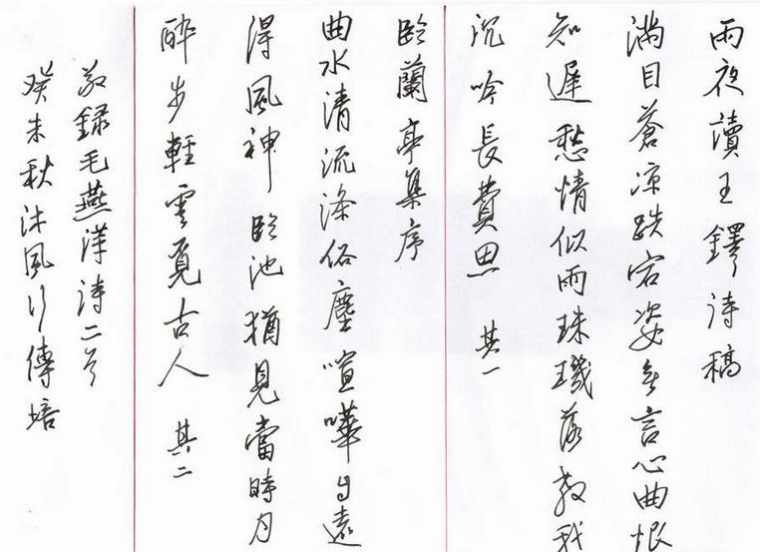 雨夜讀王鐸诗稿
满目蒼凉跌宕姿無言心曲恨
知遲愁情似雨珠璣落教我
沉吟長費思 其一
臨蘭亭集序
曲水清流滌俗塵喧嘩自遠
得風神臨池猶見當時月
醉步輕雲覓古人 其二
敬録毛燕萍詩二首
癸未秋沐風行傳培